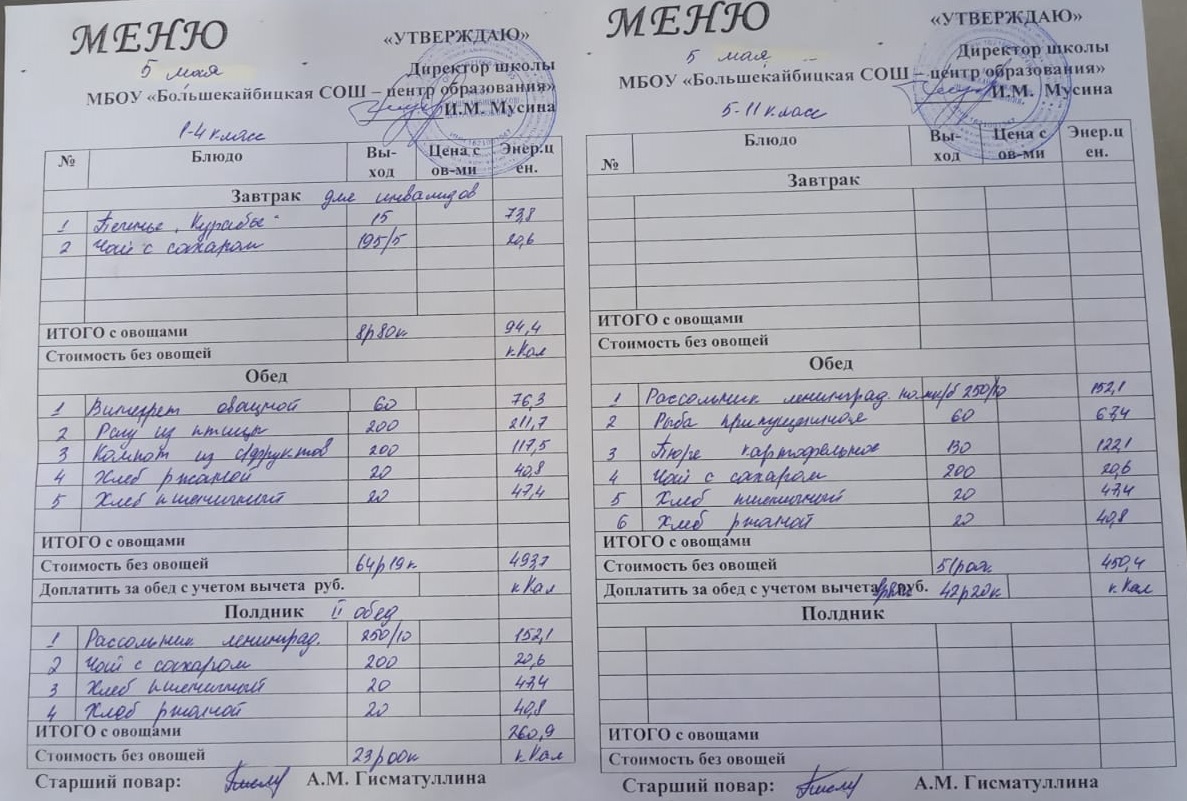 МЕНЮ
«УТВЕРЖДАЮ»
5 мая
Директор школы
МБОУ «Большекайбицкая СОШ – центр образования»
И.М. Мусина
1-4 класс
№ Блюдо Вы-ход Цена с ов-ми Энер.ц ен.
Завтрак для инвалидов
1 Печенье "Курабье" 15 73,8
2 Чай с сахаром 195/5 20,6
ИТОГО с овощами 8р80к 94,4
Стоимость без овощей кКал
Обед
1 Винегрет овощной 60 76,3
2 Рагу из птицы 200 211,7
3 Компот из с/фруктов 200 117,5
4 Хлеб ржаной 20 40,8
5 Хлеб пшеничный 20 47,4
ИТОГО с овощами
Стоимость без овощей 64р19к 493,7
Доплатить за обед с учетом вычета руб. кКал
Полдник II обед
1 Рассольник ленинград. 250/10 152,1
2 Чай с сахаром 200 20,6
3 Хлеб пшеничный 20 47,4
4 Хлеб ржаной 20 40,8
ИТОГО с овощами 260,9
Стоимость без овощей 23р00к кКал
Старший повар: А.М. Гисматуллина
МЕНЮ
«УТВЕРЖДАЮ»
5 мая
Директор школы
МБОУ «Большекайбицкая СОШ – центр образования»
И.М. Мусина
5-11 класс
№ Блюдо Вы-ход Цена с ов-ми Энер.ц ен.
Завтрак
ИТОГО с овощами
Стоимость без овощей
Обед
1 Рассольник ленинград. на м/б 250/10 152,1
2 Рыба припущенная 60 67,4
3 Пюре картофельное 130 122,1
4 Чай с сахаром 200 20,6
5 Хлеб пшеничный 20 47,4
6 Хлеб ржаной 20 40,8
ИТОГО с овощами
Стоимость без овощей 450,4
Доплатить за обед с учетом вычета руб. 42р20к кКал
Полдник
ИТОГО с овощами
Стоимость без овощей
Старший повар: А.М. Гисматуллина